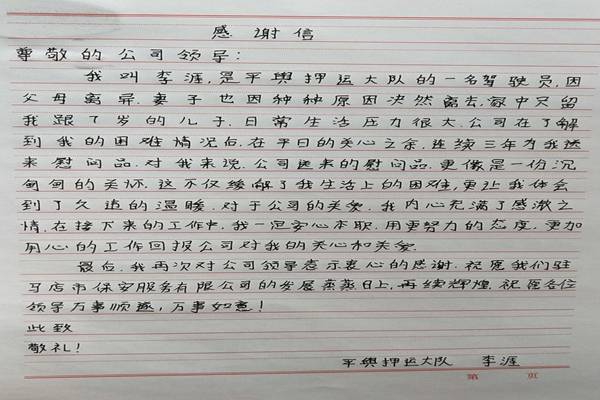 感谢信
尊敬的公司领导:
我叫李涯,是平舆押运大队的一名驾驶员,因
父母离异.妻子也因种种原因决然离去,家中只留
我跟7岁的儿子.日常生活压力很大.公司在了解
到我的困难情况后.在平日的关心之余,连续三年为我送
来慰问品.对我来说.公司送来的慰问品.更像是一份沉
甸甸的关怀.这不仅缓解了我生活上的困难,更让我体会
到了久违的温暖.对于公司的关爱.我内心充满了感激之
情.在接下来的工作中.我一定安心本职.用更努力的态度.更加
用心的工作回报公司对我的关心和关爱.
最后.我再次对公司领导表示衷心的感谢.祝愿我们驻
马店市保安服务有限公司的发展蒸蒸日上,再续辉煌.祝愿各位
领导万事顺遂,万事如意!
此致
敬礼!
平舆押运大队 李涯
第 页